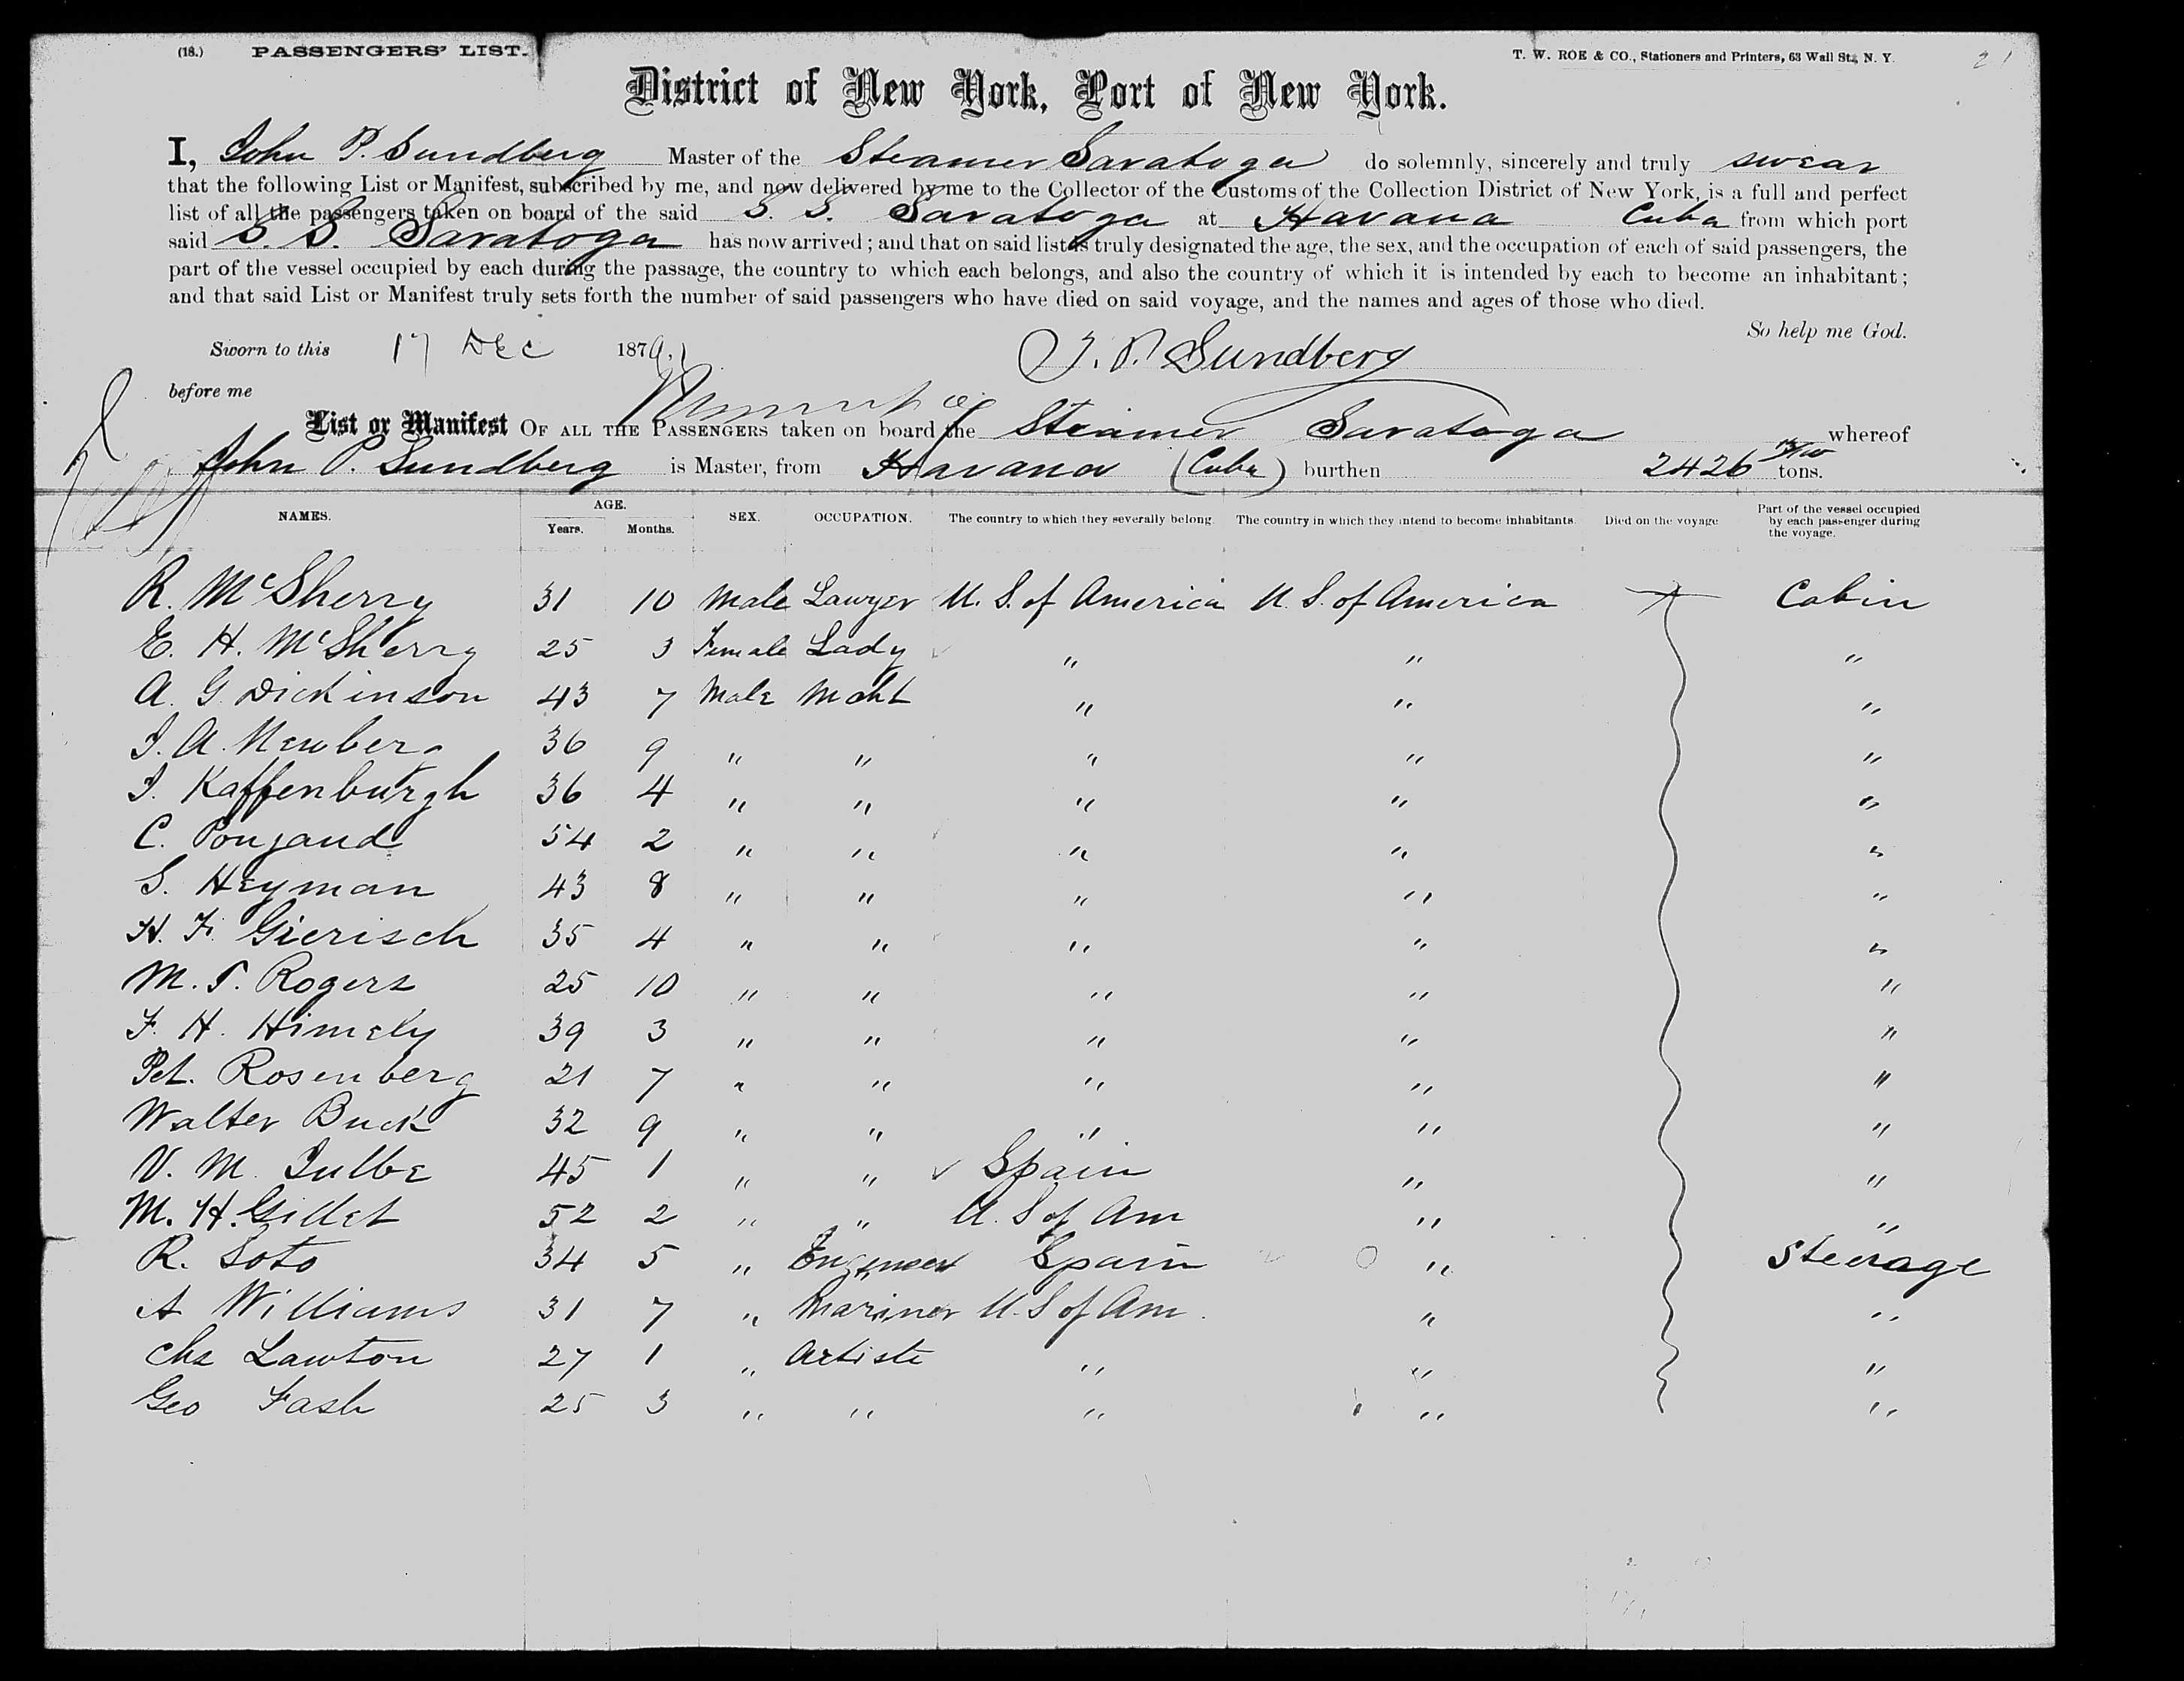 (18.) PASSENGERS' LIST. T. W. ROE & CO., Stationers and Printers, 63 Wall St., N. Y. 21
District of New York, Port of New York.
I, John P. Sundberg Master of the Steamer Saratoga do solemnly, sincerely and truly swear
that the following List or Manifest, subscribed by me, and now delivered by me to the Collector of the Customs of the Collection District of New York, is a full and perfect
list of all the passengers taken on board of the said S. S. Saratoga at Havana Cuba from which port
said S. S. Saratoga has now arrived; and that on said list is truly designated the age, the sex, and the occupation of each of said passengers, the
part of the vessel occupied by each during the passage, the country to which each belongs, and also the country of which it is intended by each to become an inhabitant;
and that said List or Manifest truly sets forth the number of said passengers who have died on said voyage, and the names and ages of those who died.
So help me God.
Sworn to this 17 Dec 1879. J. P. Sundberg
before me
List or Manifest OF ALL THE PASSENGERS taken on board the Steamer Saratoga whereof
John P. Sundberg is Master, from Havana (Cuba) burthen 2426 tons.
NAMES. AGE. Years. Months. SEX. OCCUPATION. The country to which they severally belong. The country in which they intend to become inhabitants. Died on the voyage Part of the vessel occupied by each passenger during the voyage.
R. McSherry 31 10 Male Lawyer U. S. of America U. S. of America Cabin
E. H. McSherry 25 3 Female Lady " " "
A. G. Dickinson 43 7 Male Mcht " " "
J. A. Newberg 36 9 " " " " "
I. Kaffenburgh 36 4 " " " " "
C. Poujaud 54 2 " " " " "
S. Heyman 43 8 " " " " "
H. F. Gierisch 35 4 " " " " "
M. T. Rogers 25 10 " " " " "
F. H. Himely 39 3 " " " " "
Pet. Rosenberg 21 7 " " " " "
Walter Buck 32 9 " " " " "
V. M. Julbe 45 1 " " Spain " "
M. H. Gillet 52 2 " " U. S of Am " "
R. Soto 34 5 " Engineer Spain " Steerage
A Williams 31 7 " Mariner U. S of Am. " "
Chs Lawton 27 1 " Artiste " " "
Geo Fash 25 3 " " " " "